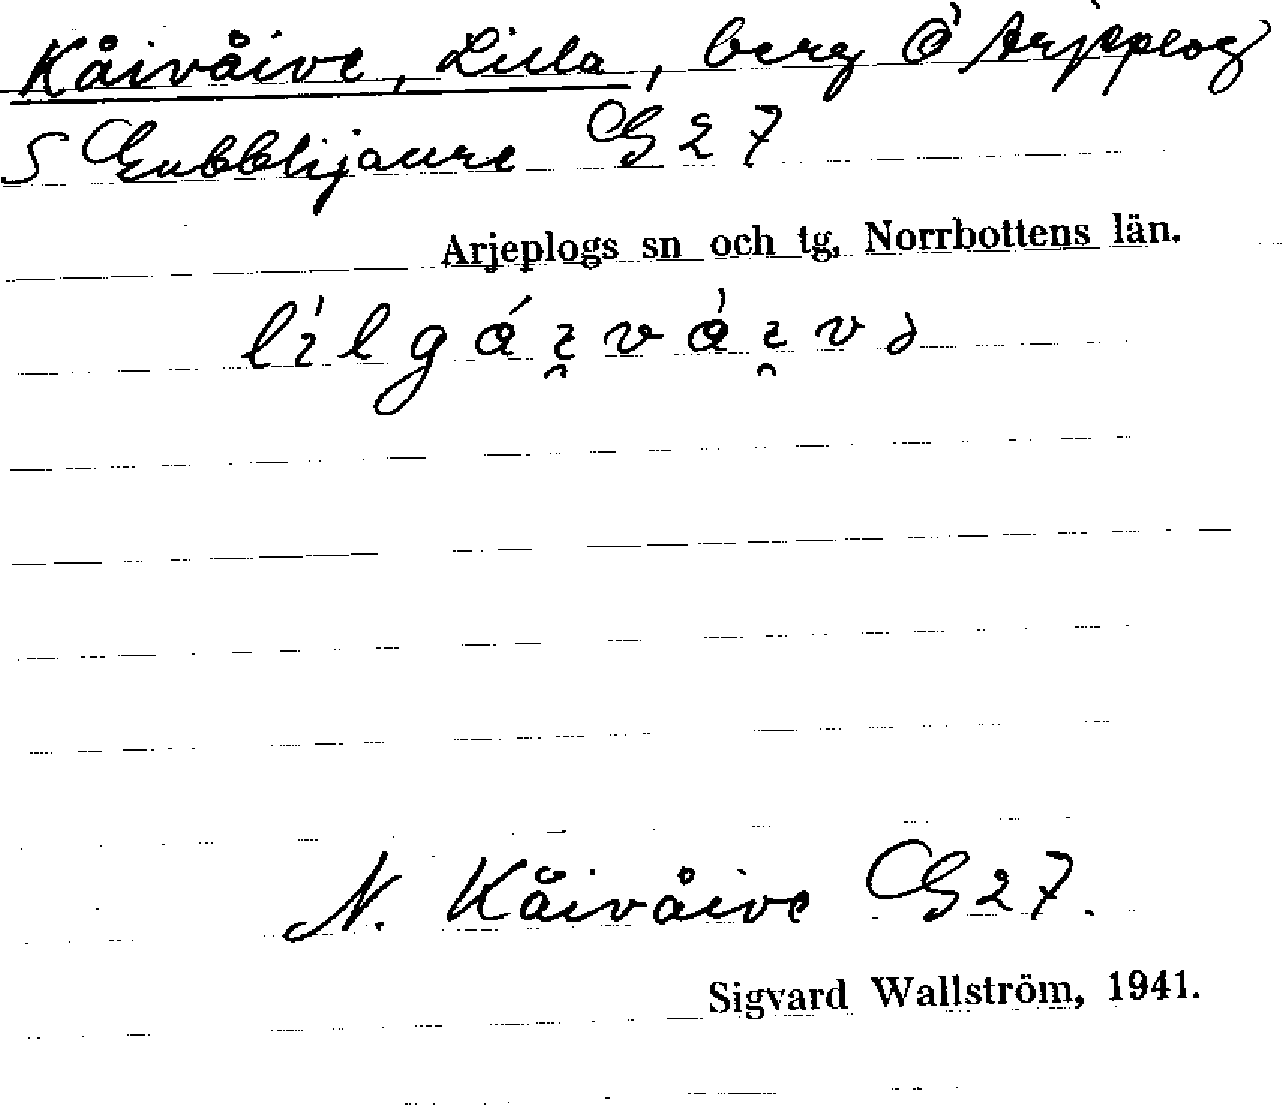 Kåivåive, Lilla, berg Ö Arjeplog
S Gubblijaure G 27
Arjeplogs sn och tg, Norrbottens län.
N. Kåivåive G 27.
Sigvard Wallström, 1941.